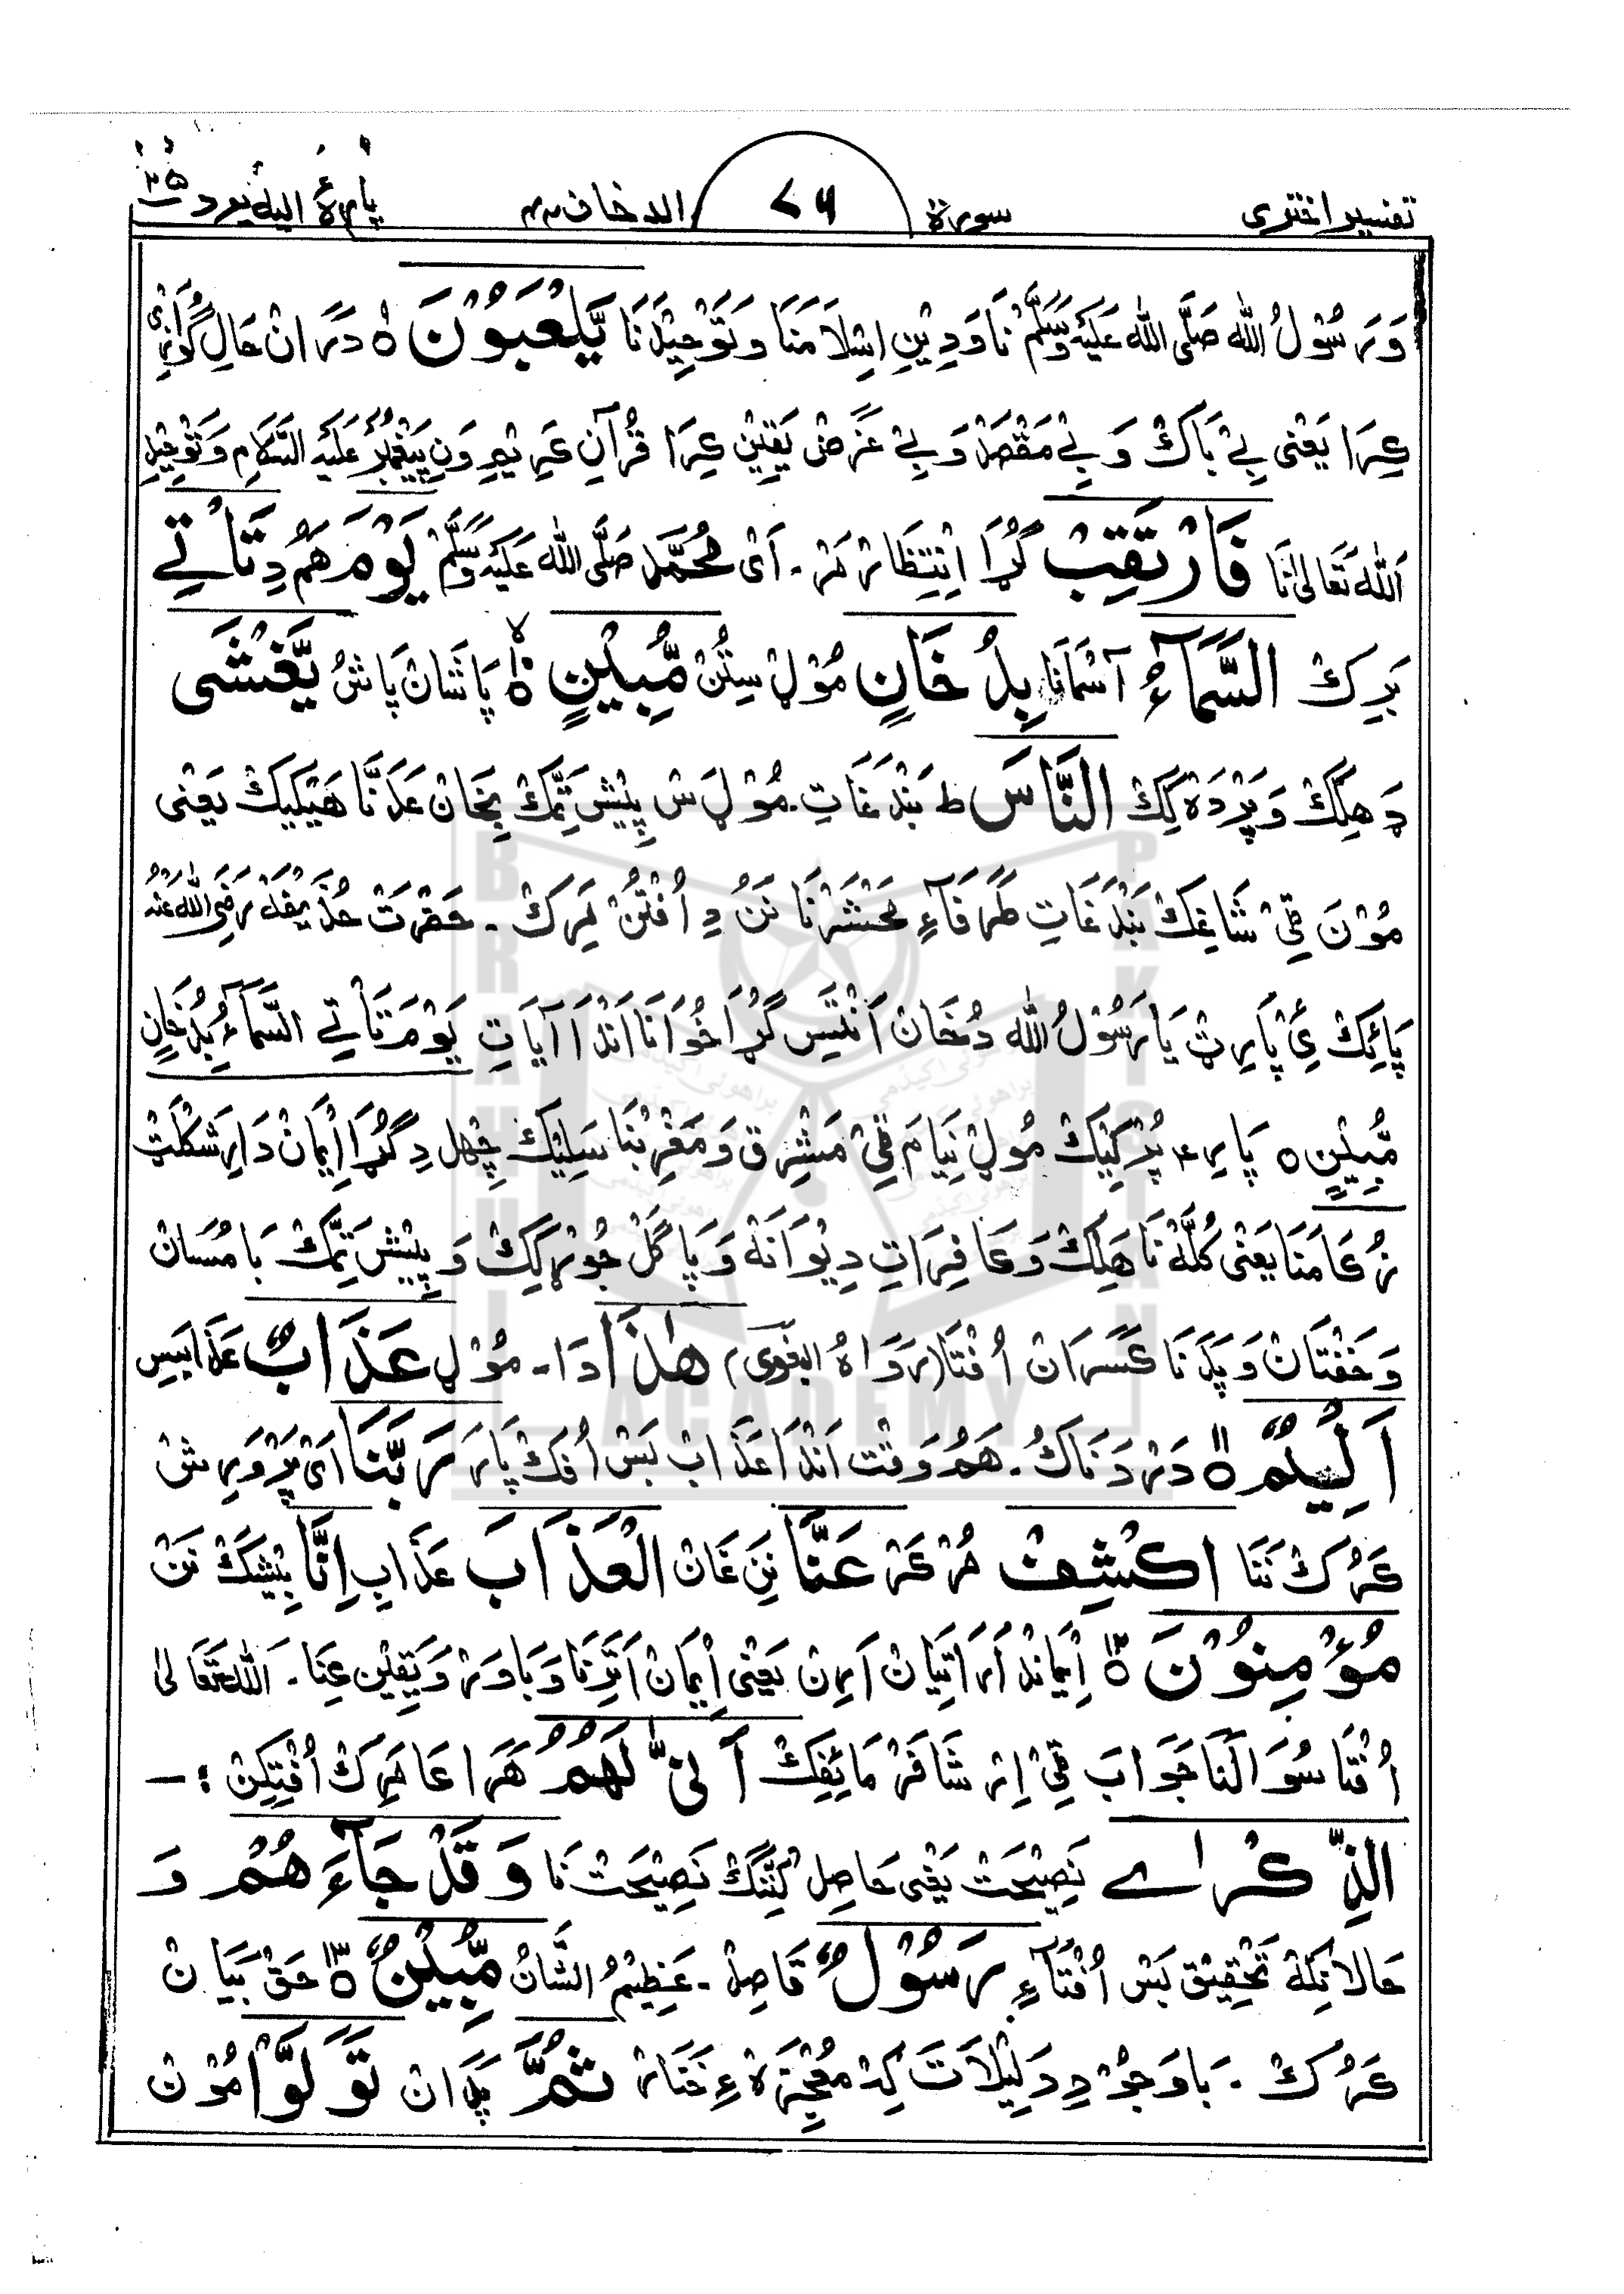 تفسیر اختری سورة ۷۶ الدخان ۴۴ پارۂ الیه یرد ۲۵
وَرَسُوْلُ اللّٰه صَلَّی اللّٰه عَلَیْهِ وَسَلَّمْ نَا وَدِیْنِ اِسْلَامَنَا وَتَوْحِیْدْنَا یَّلْعَبُوْنَ ۹ دَرَانْ حَالِ گْوَازِی
کِرَا یَعْنٰی بِےْ بَاکْ وَبِےْ مَقْصَدْ وَبِےْ غَرَضْ یَقِیْنْ کِرَا قُرْآنِ کَرِیْمِ وَنِ پَیْغَمْبَرْ عَلَیْهِ السَّلَامِ وَتَوْحِیْدِ
اَللّٰه تَعَالیٰ نَا فَارْتَقِبْ گُڑَا اِنْتِظَارْ کَرْ۔ اَیْ مُحَمَّدْ صَلَّی اللّٰه عَلَیْهِ وَسَلَّمْ یَوْمَ هَمُ دِ تَاْتِے
بَرِکْ السَّمَآءُ آسْمَانَا بِدُخَانٍ مُوْلْ سِتُنْ مُّبِیْنٍ ۱۰ پَاشَانْ پَاشُ یَّغْشَی
ڈَهکِکْ وَپَرْدَہ کِکْ النَّاسَ ط بَنْدَغَاتِ۔ مُوْلَسْ پِیْش تَمِّکْ بِخَانْ عَدَنَّا هَیْبِیْکْ یَعْنٰی
مُوْنَ ٹِیْ شَاغِکْ بَنْدَغَاتِ طَرَفَآءِ مَحْشَرْنَا نَنْ دِ اُفْتُنْ مَرِکْ۔ حَضْرَتْ حُذَیْفَهْ رَضِیَ اللّٰه عَنْهُ
پَائِکْ ئِ پَارِٹْ یَارَسُوْلُ اللّٰه دُخَانْ اَنْتَسِ گُڑَا خُوَانَا اَنْدَا آیَاتِ یَوْمَ تَاْتِے السَّمَآءُ بِدُخَانٍ
مُّبِیْنٍ ۵ پَارِ۴ پُرْ کَیْکْ مُوْلْ نِیَامَ ٹِیْ مَشْرِق وَمَغْرِبْنَا سَلِیْکْ چِهْل دِ گُڑَا اِیْمَانْ دَارِ شَکْلَٹْ
زُکَامَنَا یَعْنٰی کُلَّهْ نَا هَلِکْ وَکَافِرَاتِ دِیْوَانَهْ وَپَاگَلْ جُوْڑ کِکْ وَپِیْش تَمِّکْ بَا مُسَانْ
وَخَفْتَانْ وَپَدَنَا کَسَرَانْ اُفْتَا (رَوَاہُ البغوی) هٰذَا دَا۔ مُوْلِ عَذَابٌ عَذَابَسِ
اَلِیْمٌ ۱۱ دَرْدَنَاکُ۔ هَمُ وَقْت اَنْدَا عَذَابْ بَسْ اُفْکْ پَارَ رَبَّنَا اَیْ پَرْوَرِشْ
کَرُکْ نَنَا اکْشِفْ مُرْ کَرْ عَنَّا نَنِ غَانْ الْعَذَابَ عَذَابِ اِنَّا بِیْشَکْ نَنْ
مُؤْمِنُوْنَ ۱۲ اِیْمَانْدَارَاتِیَانْ اَرِنْ یَعْنٰی اِیْمَانْ اَتِّنَا وَبَاوَرْ وَیَقِیْن کِنَا۔ اَللّٰه تَعَالیٰ
اُفْتَا سُوَالَنَا جَوَابَ ٹِیْ اِرْشَافَرْ مَائِفِکْ اَنّٰی لَهُمُ هَرَا کَا مَرِکْ اُفْتِکِنْ :—
الذِّکْرٰے نَصِیْحَتْ یَعْنٰی حَاصِلْ کَنَّنْگْ نَصِیْحَتْ نَا وَقَدْ جَآءَ هُمْ وَ
حَالَانِکَهْ تَحْقِیْق بَسْ اُفْتَآءِ رَسُوْلٌ قَاصِدْ۔ عَظِیْمُ الشَّانْ مُّبِیْنٌ ۱۳ حَقْ بَیَانْ
کَرُکْ۔ بَاوَجُوْدِ دَلِیْلَاتَ کِهْ مُعْجِزَہْ ءِ خَنَارْ ثُمَّ پَدَانْ تَوَلَّوْا مُوْنْ